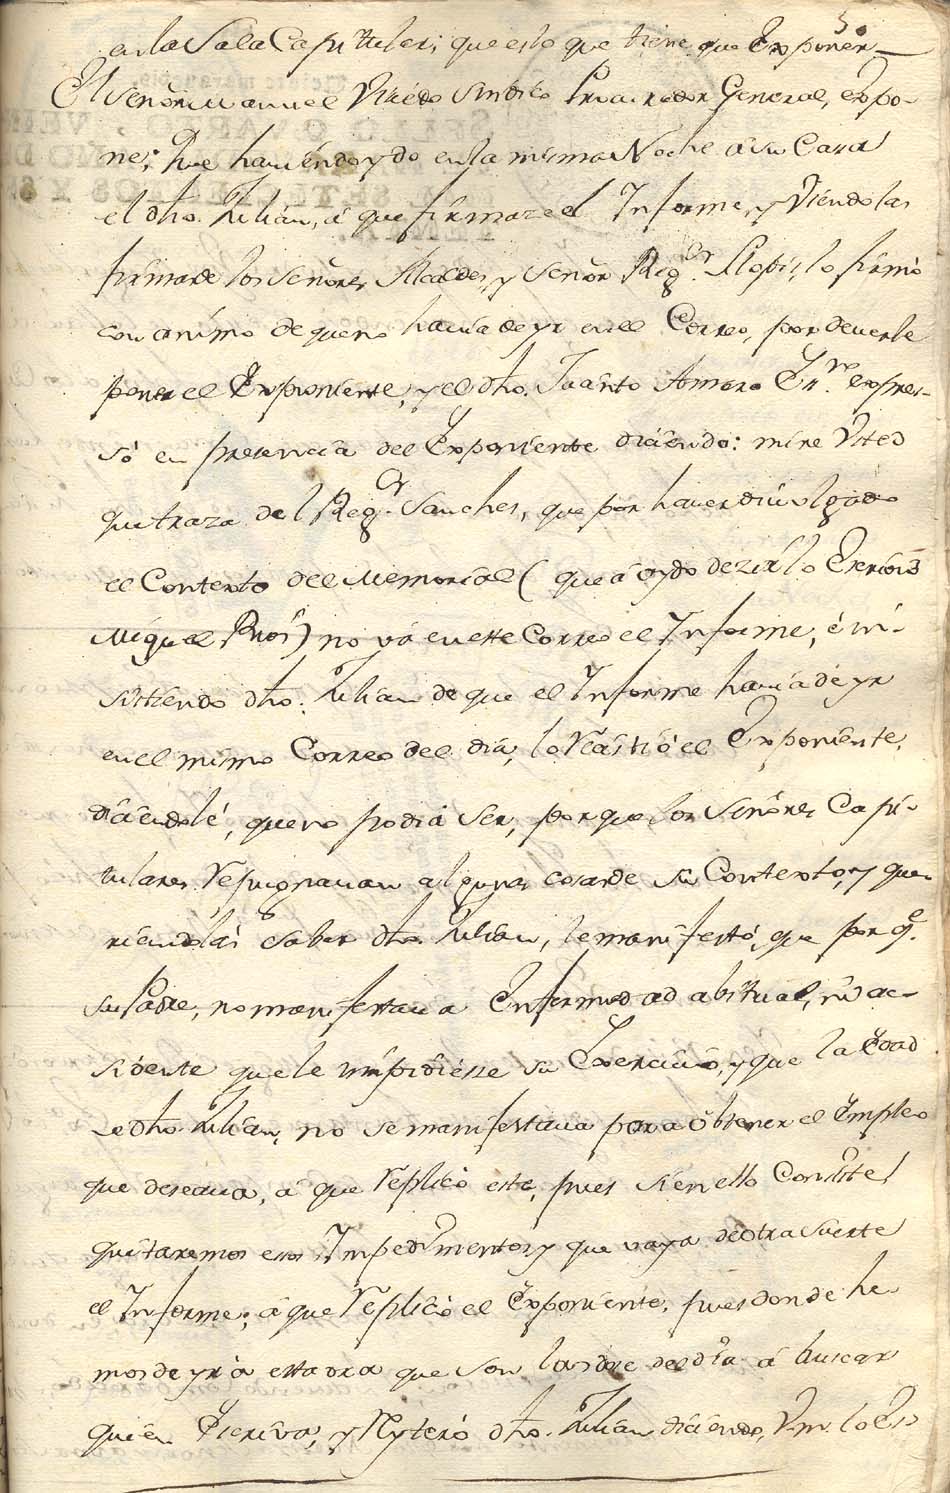 50
en la Sala Capitular; que es lo que tiene que Exponer
El Señor Manuel Viñedo Sindico Procurador General, expo-
ne; Que haviendo ydo en la misma Noche á su Casa
el dho. Julián, á que firmaze el Informe, y Viendo las
firmas de los señores Alcaldes, y señor Regor. Llopis, lo firmó
con animo de que no havia de yr en el Correo, por deverle
poner el Exponiente, y el dho. Jacinto Amoros Esno. expres-
só en presencia del Exponiente diciendo: mire Vsted
que traza del Regor. Sanches, que por haver divulgado
el Contexto del Memorial (que á oydo dezirlo
Miguel Bros) no vá en este Correo el Informe, é in-
sistiendo dho. Julian de que el Informe havia de yr
en el mismo Correo del dia, lo Resistió el Exponiente,
diciendole, que no podia ser, porque los Señores Capi-
tulares Repugnavan algunas cosas de su Contexto, y que-
riendolas saber dho. Julian, le manifestó, que por qe.
su Padre, no manifestava Enfermedad abitual, ni ac-
sidente que le impidiesse su Exercicio, y que la Edad
de dho. Julian, no se manifestava para obtener el Empleo
que deseava, á que Replicó este, pues si en ello Consiste
quitaremos esos Impedimentos y que vaya de otra suerte
el Informe; á que Replicó el Exponiente, pues donde he-
mos de yr á esta ora que son las dose del dia á buscar
quien Escriva, y Reyteró dho. Julian diciendo, Vm. lo Es